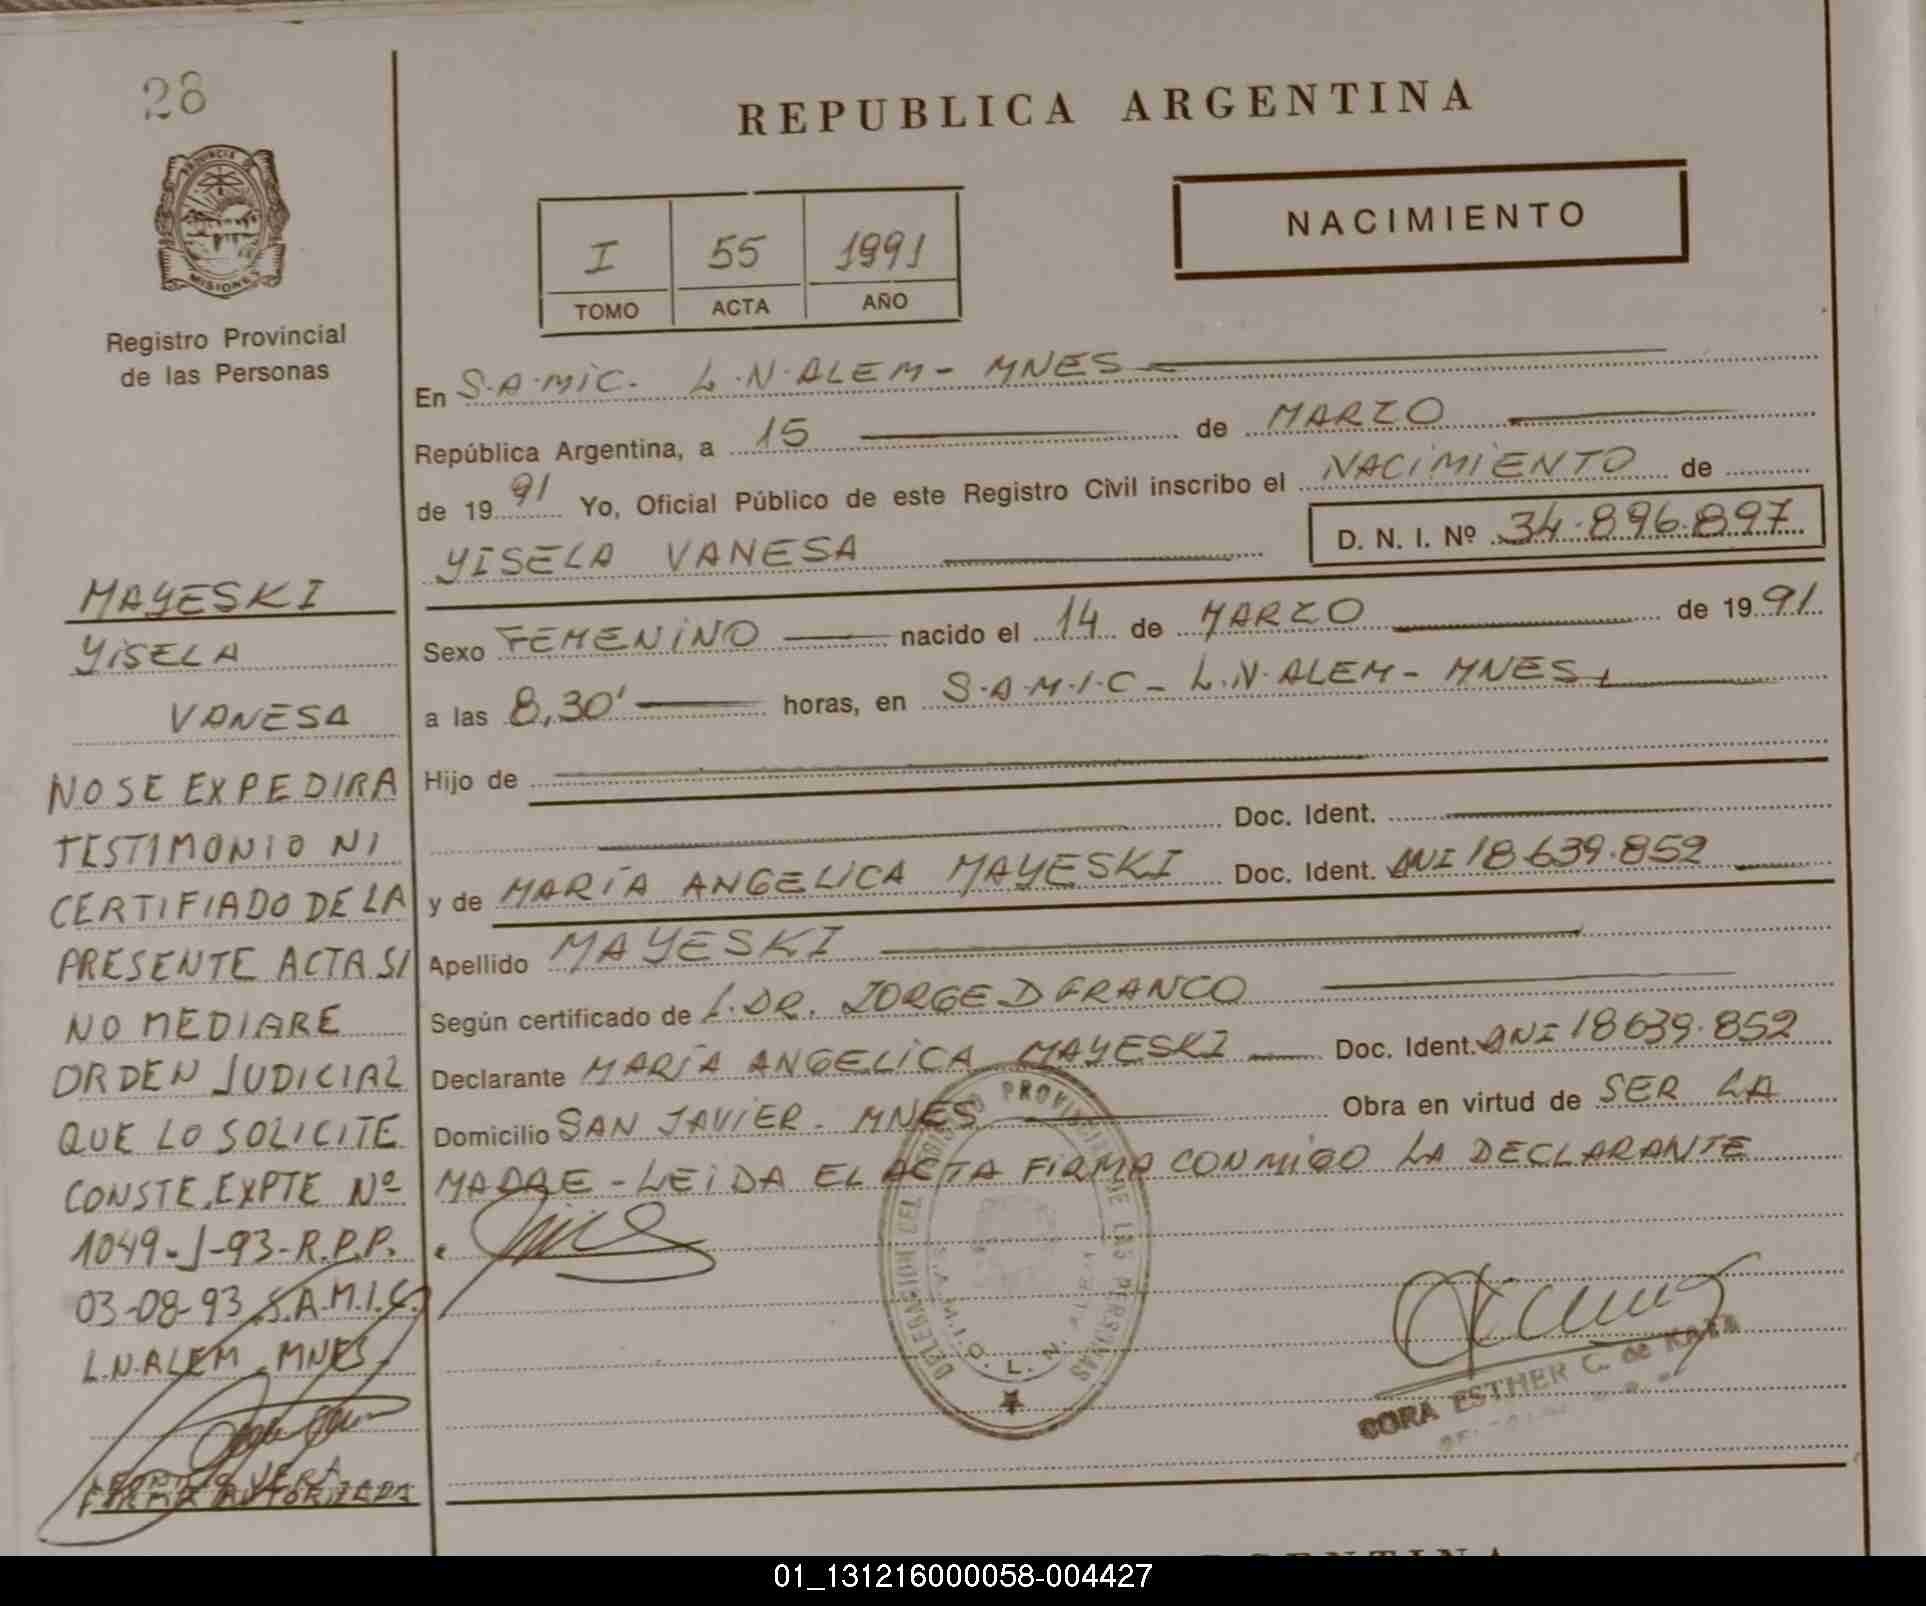 28
PROVINCIA DE
MISIONES
Registro Provincial
de las Personas
MAYESKI
YISELA
VANESA
NO SE EXPEDIRA
TESTIMONIO NI
CERTIFIADO DE LA
PRESENTE ACTA SI
NO MEDIARE
ORDEN JUDICIAL
QUE LO SOLICITE
CONSTE. EXPTE Nº
1049-J-93-R.P.P.
03-08-93 S.A.M.I.C.
L.N.ALEM MNES
VERA
FIRMA AUTORIZADA
REPUBLICA ARGENTINA
NACIMIENTO
I 55 1991
TOMO ACTA AÑO
En S.A.MIC. L.N.ALEM - MNES
República Argentina, a 15 de MARZO
de 1991 Yo, Oficial Público de este Registro Civil inscribo el NACIMIENTO de
YISELA VANESA D. N. I. Nº 34.896.897
Sexo FEMENINO nacido el 14 de MARZO de 1991
a las 8,30' horas, en S.A.M.I.C - L.N.ALEM - MNES
Hijo de
Doc. Ident.
y de MARÍA ANGELICA MAYESKI Doc. Ident. DNI 18.639.852
Apellido MAYESKI
Según certificado de L.DR. JORGE D FRANCO
Declarante MARÍA ANGELICA MAYESKI Doc. Ident. DNI 18639.852
Domicilio SAN JAVIER - MNES Obra en virtud de SER LA
MADRE - LEIDA EL ACTA FIRMA CONMIGO LA DECLARANTE
DELEGACION DEL REGISTRO PROVINCIAL DE LAS PERSONAS
S.A.M.I.C. L. N. ALEM
DORA ESTHER C. de
01_131216000058-004427